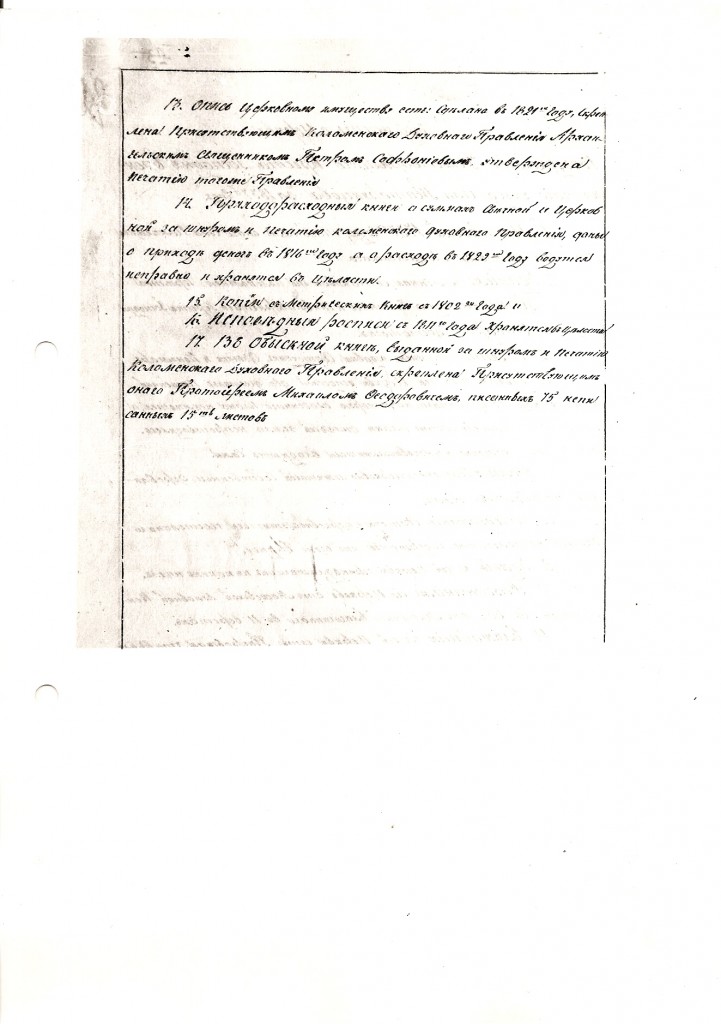 13. Опись Церковному имуществу есть: Сдѣлана въ 1821мъ Году, Скреп
лена Присутствующимъ Коломенскаго Духовнаго Правленія Архан
гельскимъ Священникомъ Петромъ Софроніовымъ утверждена
печатію тогоже Правленія
14. Приходорасходныя книги о суммахъ Свѣчной и Церков
ной за шнуромъ и печатію коломенскаго духовнаго правленія, даны
о приходѣ денегъ въ 1816мъ году а о расходѣ въ 1829мъ Году водятся
исправно и хранятся въ Цѣлости.
15. Копіи съ Метрическихъ Книгъ съ 1802го года и
16. Исповѣдныя росписи съ 18 года хранятся въ Цѣлости
17. Въ Обыскной книгѣ, выданной за шнуромъ и Печатію
Коломенскаго Духовнаго Правленія, скреплена Присутствующимъ
онаго Протоіереемъ Михаиломъ Ѳеодоровичемъ, писанныхъ 75 непи
санныхъ 15ть Листовъ